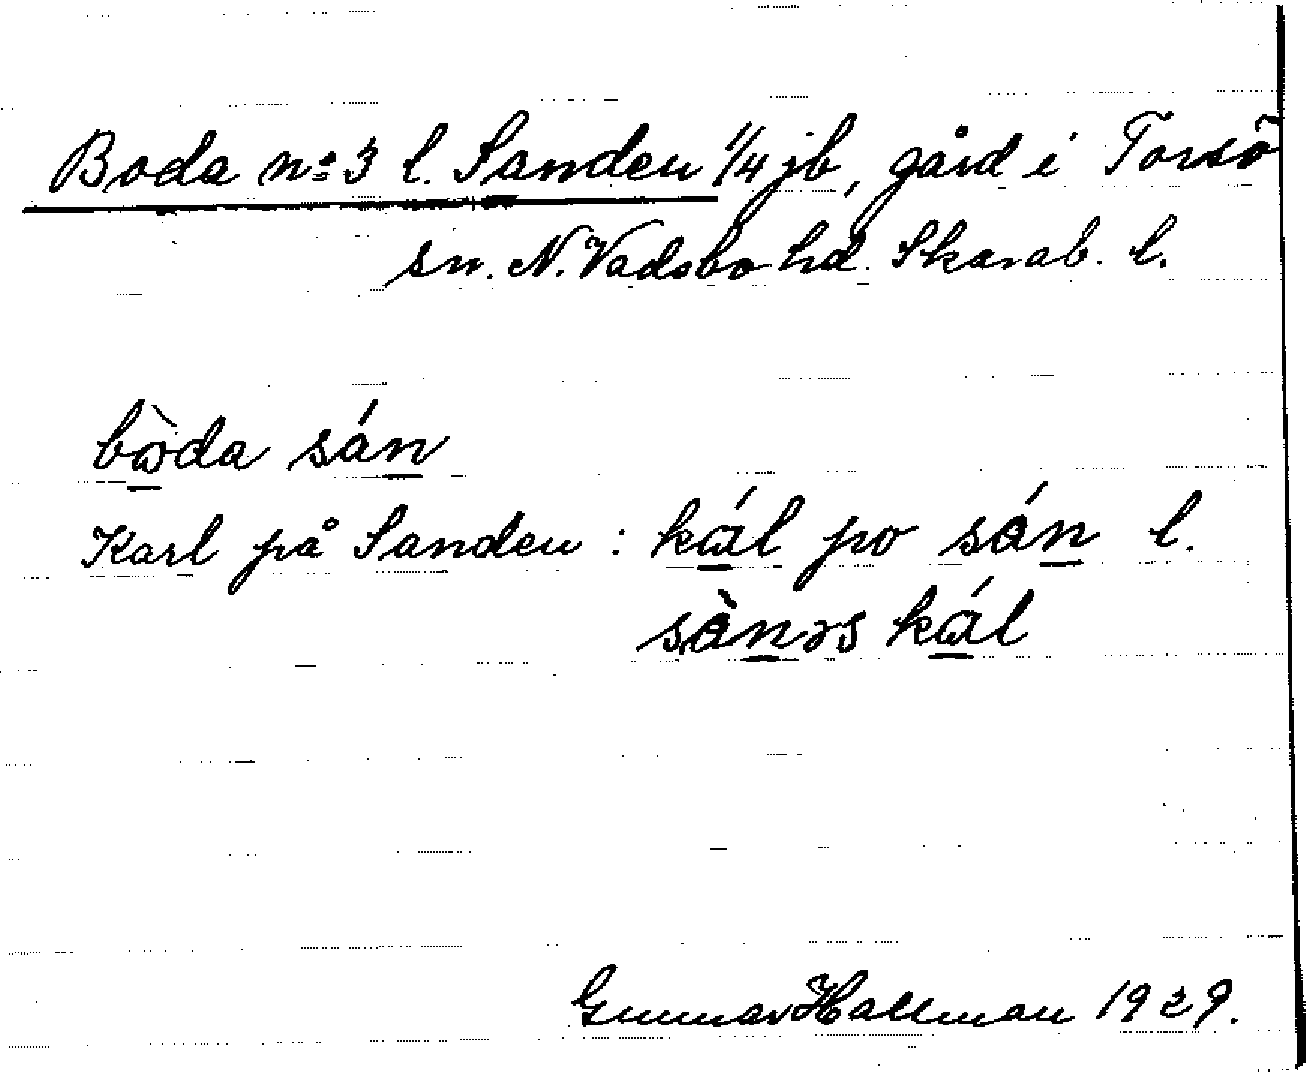 Boda nº 3 l. Sanden 1/4 jb, gård i Torsö
sn. N. Vadsbo hd. Skarab. l.
bὼda sán
Karl på Sanden : kɑ́l po sán l.
sànəs kɑ́l
Gunnar Hallman 1929.